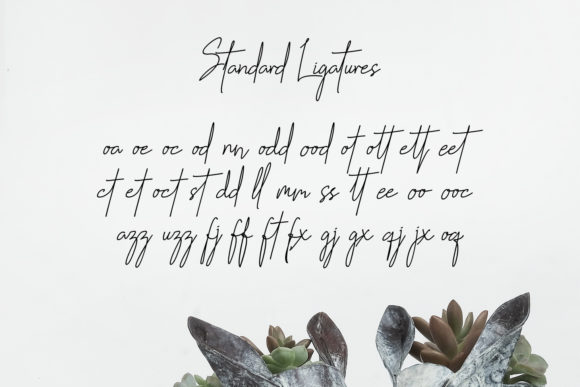 Standard Ligatures
oa oe oc od nn odd ood ot ott ett eet
ct et oct st dd ll mm ss tt ee oo ooc
azz uzz fj ff ft fx gj gx qj jx oq